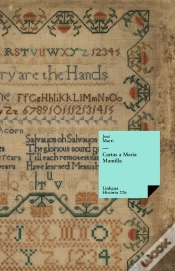 RSTUVWXYZ 1234
ry are the Hands
FfGgHhIiKkLlMmNnOo
Zz 67891011121314
corn
Salvation oh Salvation
The glorious sound
Till each remotest
years Have learned Messiah
José
Martí
—
Cartas a María
Mantilla
Linkgua
Historia
WOOK